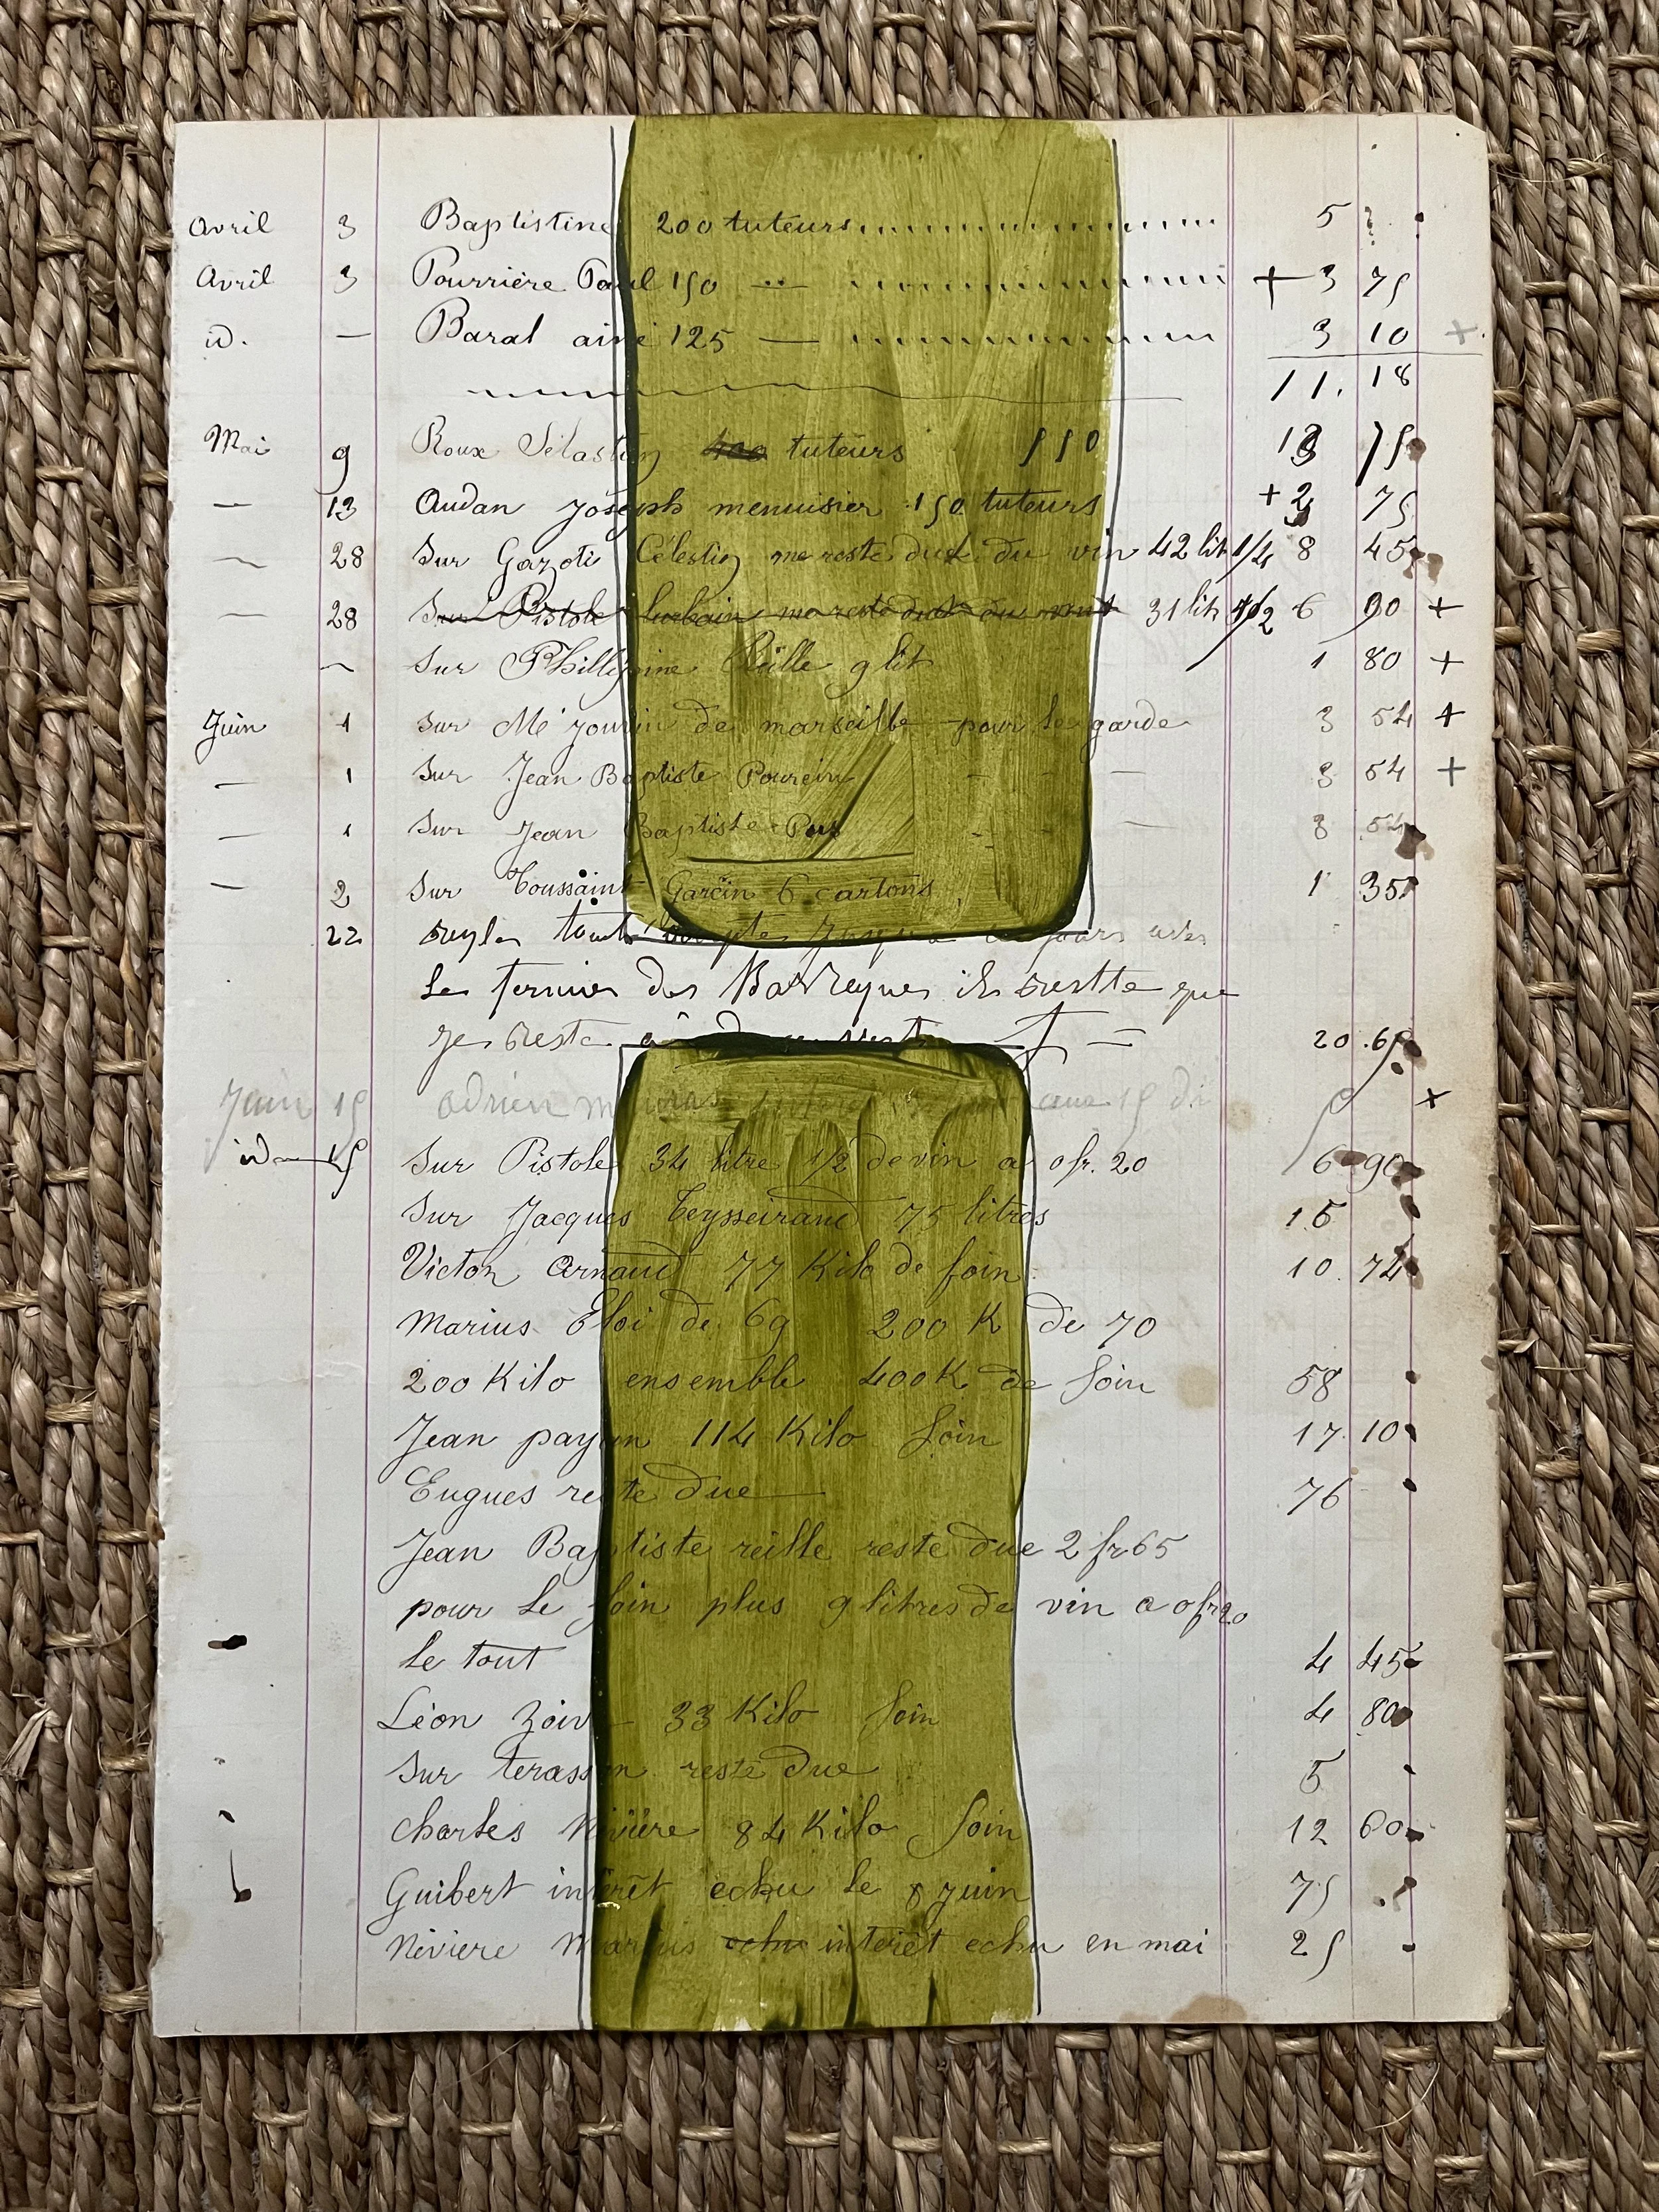 Avril 3 Baptistine 200 tuteurs 5
Avril 3 Pourrière Paul 150 — + 3 75
id. — Baral ainé 125 — 3 10 +
11. 18
Mai 9 Roux Sébastien 400 tuteurs 550 13 75
— 13 Audan Joseph menuisier 150 tuteurs + 75
— 28 Sur Gazoti Célestin me reste du vin 42 lit 1/4 8 45
— 28 Sur Pistole me reste 31 lit 1/2 6 90 +
— Sur Phillipine Reille 9 lit 1 80 +
Juin 1 Sur Me jourdin de marseille pour le garde 3 54 +
— 1 Sur Jean Baptiste Pourcin — 3 54 +
— 1 Sur Jean Baptiste — 3 54
— 2 Sur Toussaint Garcin 6 cartons 1 35
22 regler tout compte
le fermier des que
je reste 20.65
Juin 15 adrien 15 5 +
id — 15 Sur Pistole 34 litre 1/2 de vin a 0 fr. 20 6 90
Sur Jacques Teysseirand 75 litres 15
Victor Arnaud 77 Kilo de foin 10. 74
Marius Eloi de 69 200 K de 70
200 Kilo ensemble 400 K. de foin 58
Jean payan 114 Kilo foin 17. 10
Eugues reste due — 76
Jean Baptiste reille reste due 2 fr 65
pour le foin plus 9 litres de vin a 0 fr 20
le tout 4 45
Léon 33 Kilo foin 4 80
Sur terasson reste due 5
Charles Nivière 84 Kilo foin 12 60
Guibert intérêt echu le 8 juin 75
Niviere Marius echu interêt echu en mai 25